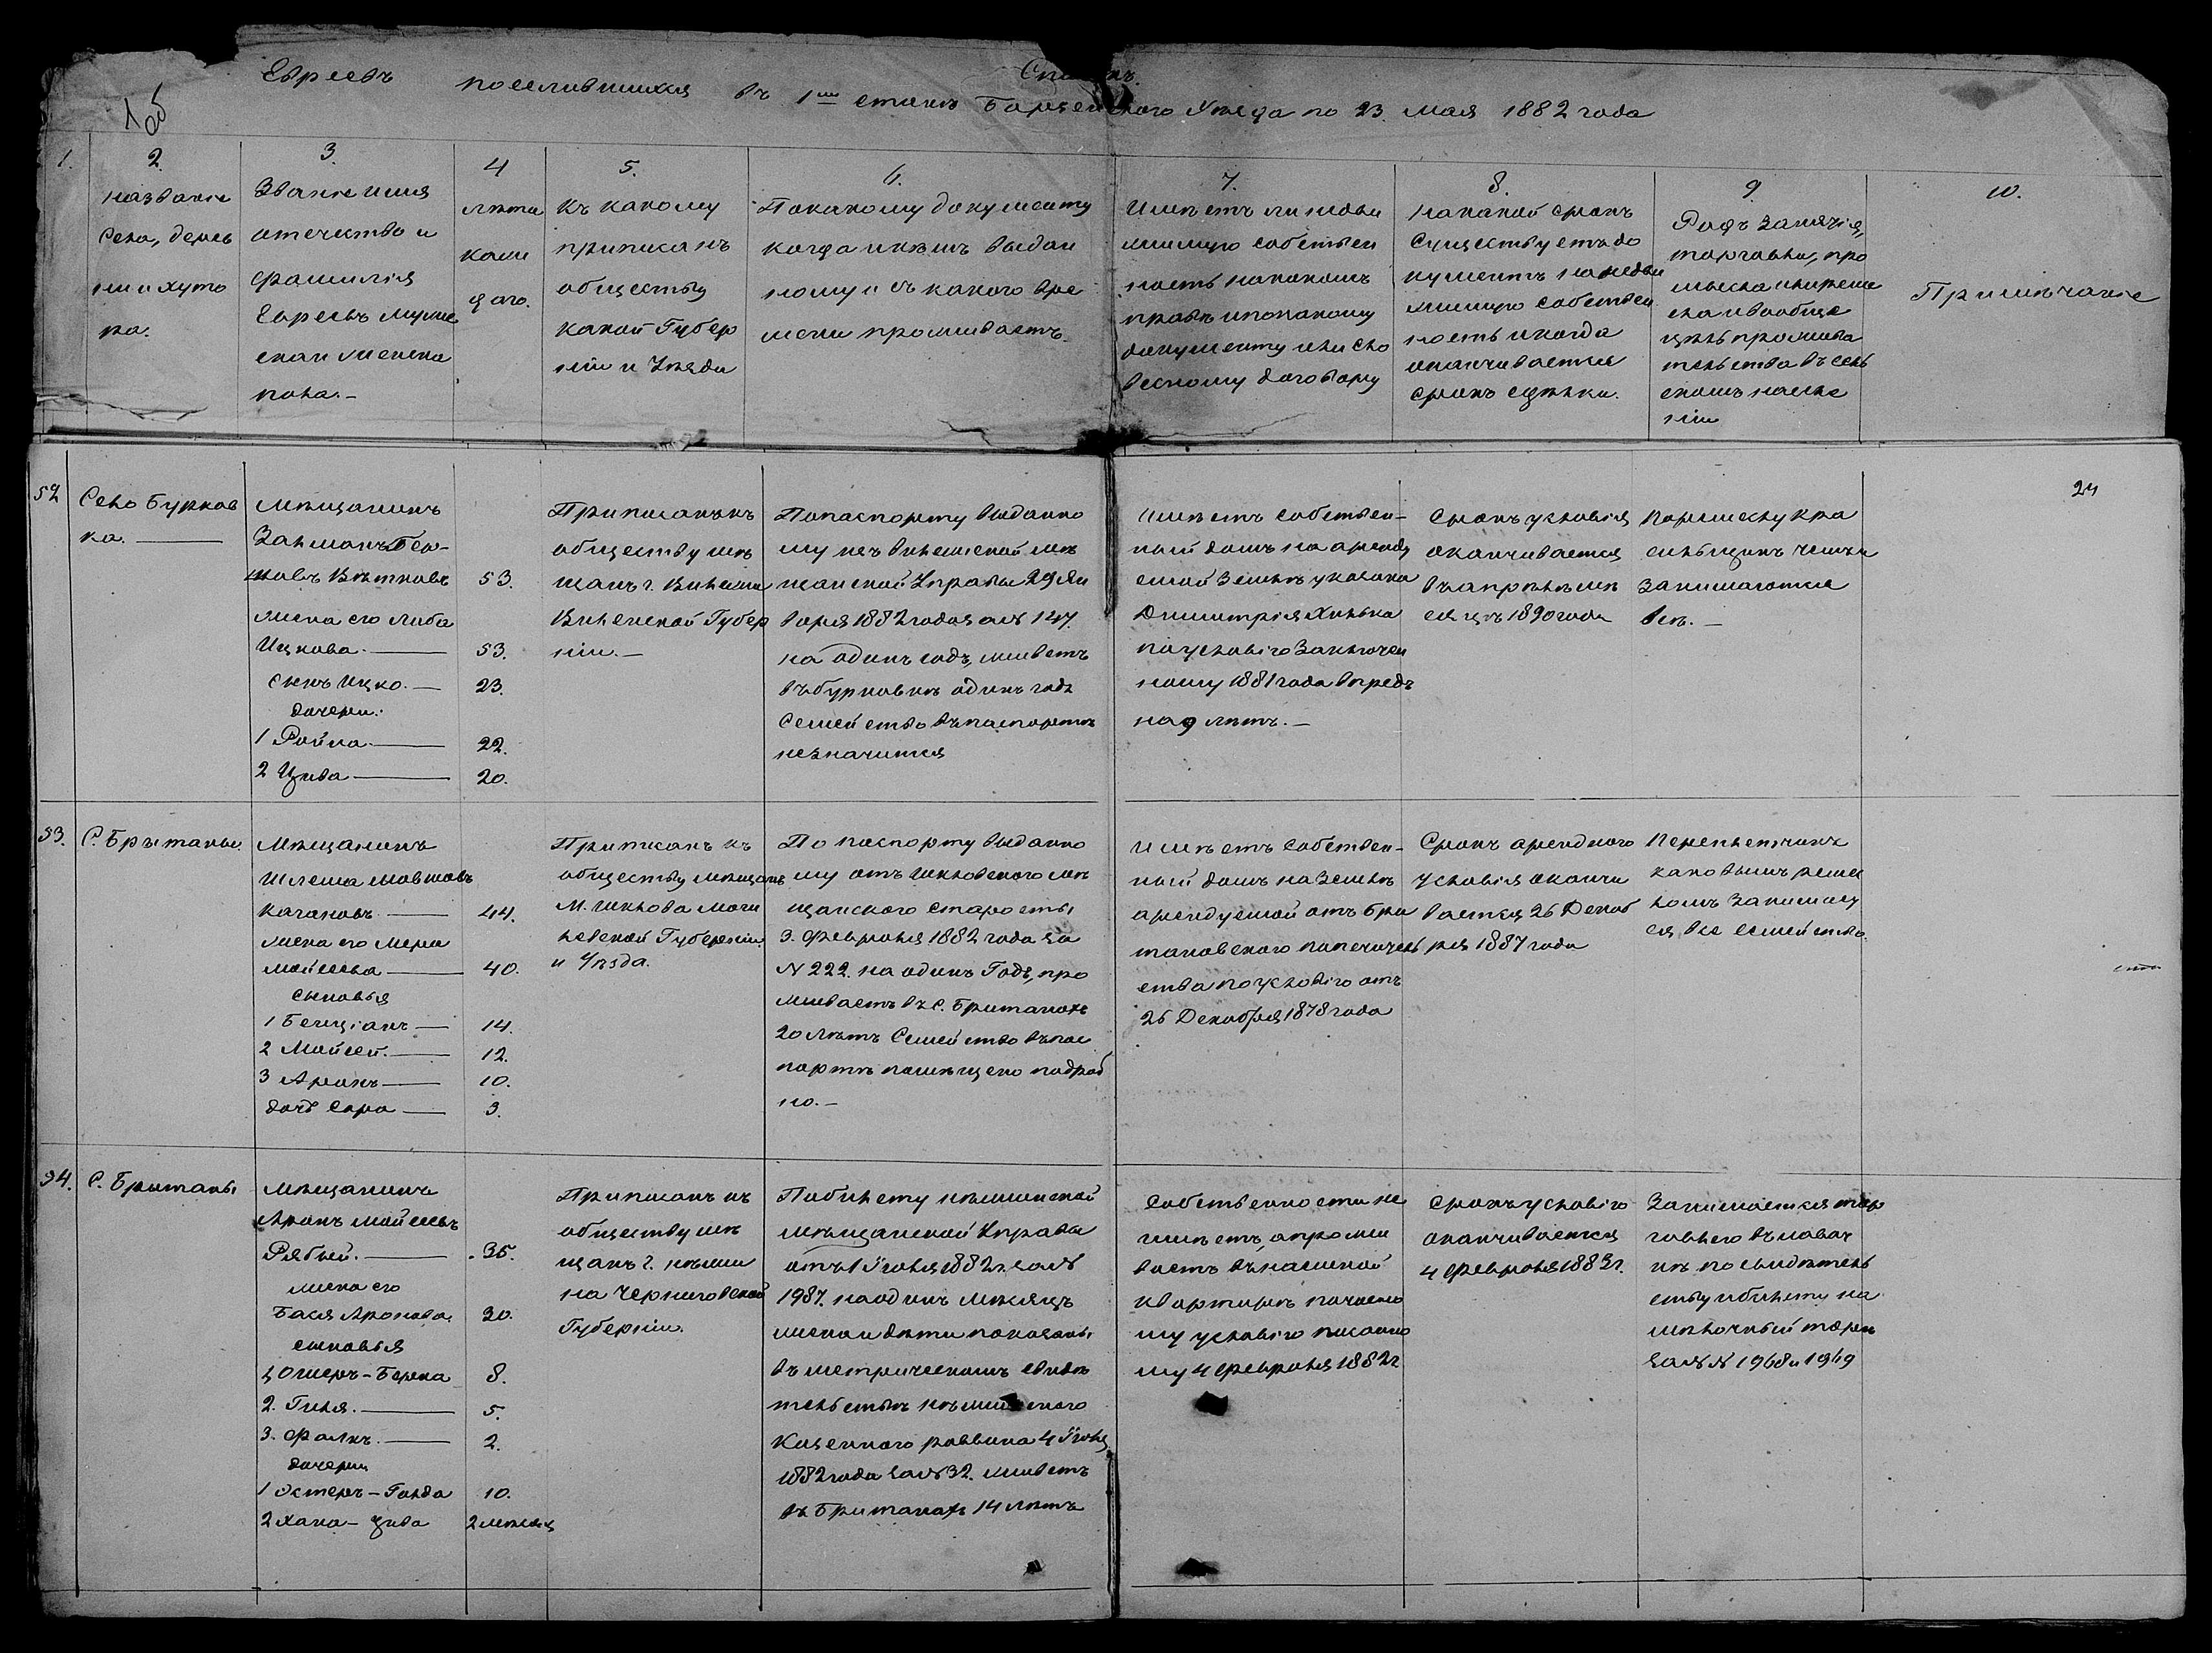 Списокъ
Евреевъ поселившихся въ 1мъ станѣ Борзенскаго Уѣзда по 23 мая 1882 года
1 об
1.
2.
Названіе
Села, дерев
ни и хуто
ра.
3.
Званіе имя
отечество и
фамилія
Евреевъ муже
скаго женска
пола.–
4
лѣта
каж
даго.
5.
Къ какому
приписанъ
обществу
какой Губер
ніи и Уѣзда
6.
По какому документу
когда и кѣмъ выдан
ному и съ какого вре
мени проживаетъ.
7.
Имѣетъ ли недви
жимую собствен
ность на какомъ
правѣ и по какому
документу или сло
весному договору
8.
На какой срокъ
существуетъ до
кументъ на недви
жимую собствен
ность и когда
оканчивается
срокъ сдѣлки.
9.
Родъ занятія,
торговли, про
мысла и ремес
ла и вообще
цѣль прожива
тельства въ сель
скомъ населе
ніи
10.
Примѣчаніе
24
52
Село Бурков
ка.
Мѣщанинъ
Залманъ
Вѣтковъ 53.
жена его Либа
Ицкова. 53.
сынъ Ицко. 23.
дочери:
1 Ройза 22.
2 Цива 20.
Приписанъ къ
обществу мѣ
щанъ г. Вильни
Виленской Губер
ніи.–
По паспорту выданно
му изъ Виленской мѣ
щанской Управы 29 Ян
варя 1882 года за № 147.
на одинъ годъ, живетъ
въ Бурковкѣ одинъ годъ
Семейство въ паспортѣ
не значится
Имѣетъ собствен–
ный домъ на арендо
емой землѣ у козака
Димитрія Хилька
по условію заключен
ному 1881 года впредь
на 9 лѣтъ.–
Срокъ условія
оканчивается
въ апрѣлѣ мѣ
сяцѣ 1890 года
По ремеслу кра
сильщикъ чемъ и
занимаются
всѣ.–
53.
С. Брытаны.
Мѣщанинъ
Шлема Мовшовъ
Кагановъ 44.
жена его Мера
Мойсеева 40.
сыновья
1 Бенціанъ 14.
2 Мойсей. 12.
3 Аронъ 10.
дочь Сара 3.
Приписанъ къ
обществу мѣщанъ
М. Шклова Моги
левской Губерніи
и Уѣзда.
По паспорту выданно
му отъ Шкловскаго мѣ
щанскаго старосты
3. февраля 1882 года за
N 222. на одинъ Годъ, про
живаетъ въ с. Британахъ
20 лѣтъ Семейство въ пас
портѣ помѣщено подроб
но.–
Имѣетъ собствен–
ный домъ на землѣ
арендуемой отъ Бри
тановскаго попечитель
ства по условію отъ
26 Декабря 1878 года
Срокъ аренднаго
условія оканчи
вается 26 Декаб
ря 1887 года
Переплетчикъ
каковымъ реме
сломъ занимает
ся все семейство.
54.
С. Брытаны
Мѣщанинъ
Аронъ Мойсеевъ
Рябый. 35.
жена его
Бася Аронова 30.
сыновья
1 Ошеръ–Берка 8.
2. Гиля. 5.
3. Фалкъ. 2.
дочери
1 Эстеръ–Голда 10.
2 Хана–Цива 2 мѣсяц
Приписанъ къ
обществу мѣ
щанъ г. Нѣжи
на Черниговской
Губерніи.
По билету Нѣжинской
мѣщанской Управы
отъ 1 Іюня 1882 г. за №
1987. на одинъ мѣсяцъ
жена и дѣти показаны
въ метрическомъ свидѣ
тельствѣ Нѣжинского
Казенного раввина 4 Іюня
1882 года за № 32. живетъ
въ Британахъ 14 лѣтъ
Собственности не
имѣетъ, а прожи
ваетъ въ наемной
квартирѣ
му условію писанно
му 4 февраля 1882 г
Срокъ условію
оканчивается
4 февраля 1883 г.
Занимается тор
говлею въ лавоч
кѣ по свидѣтель
ству и билету на
мѣлочный торгъ
за № N 1968 и 1969